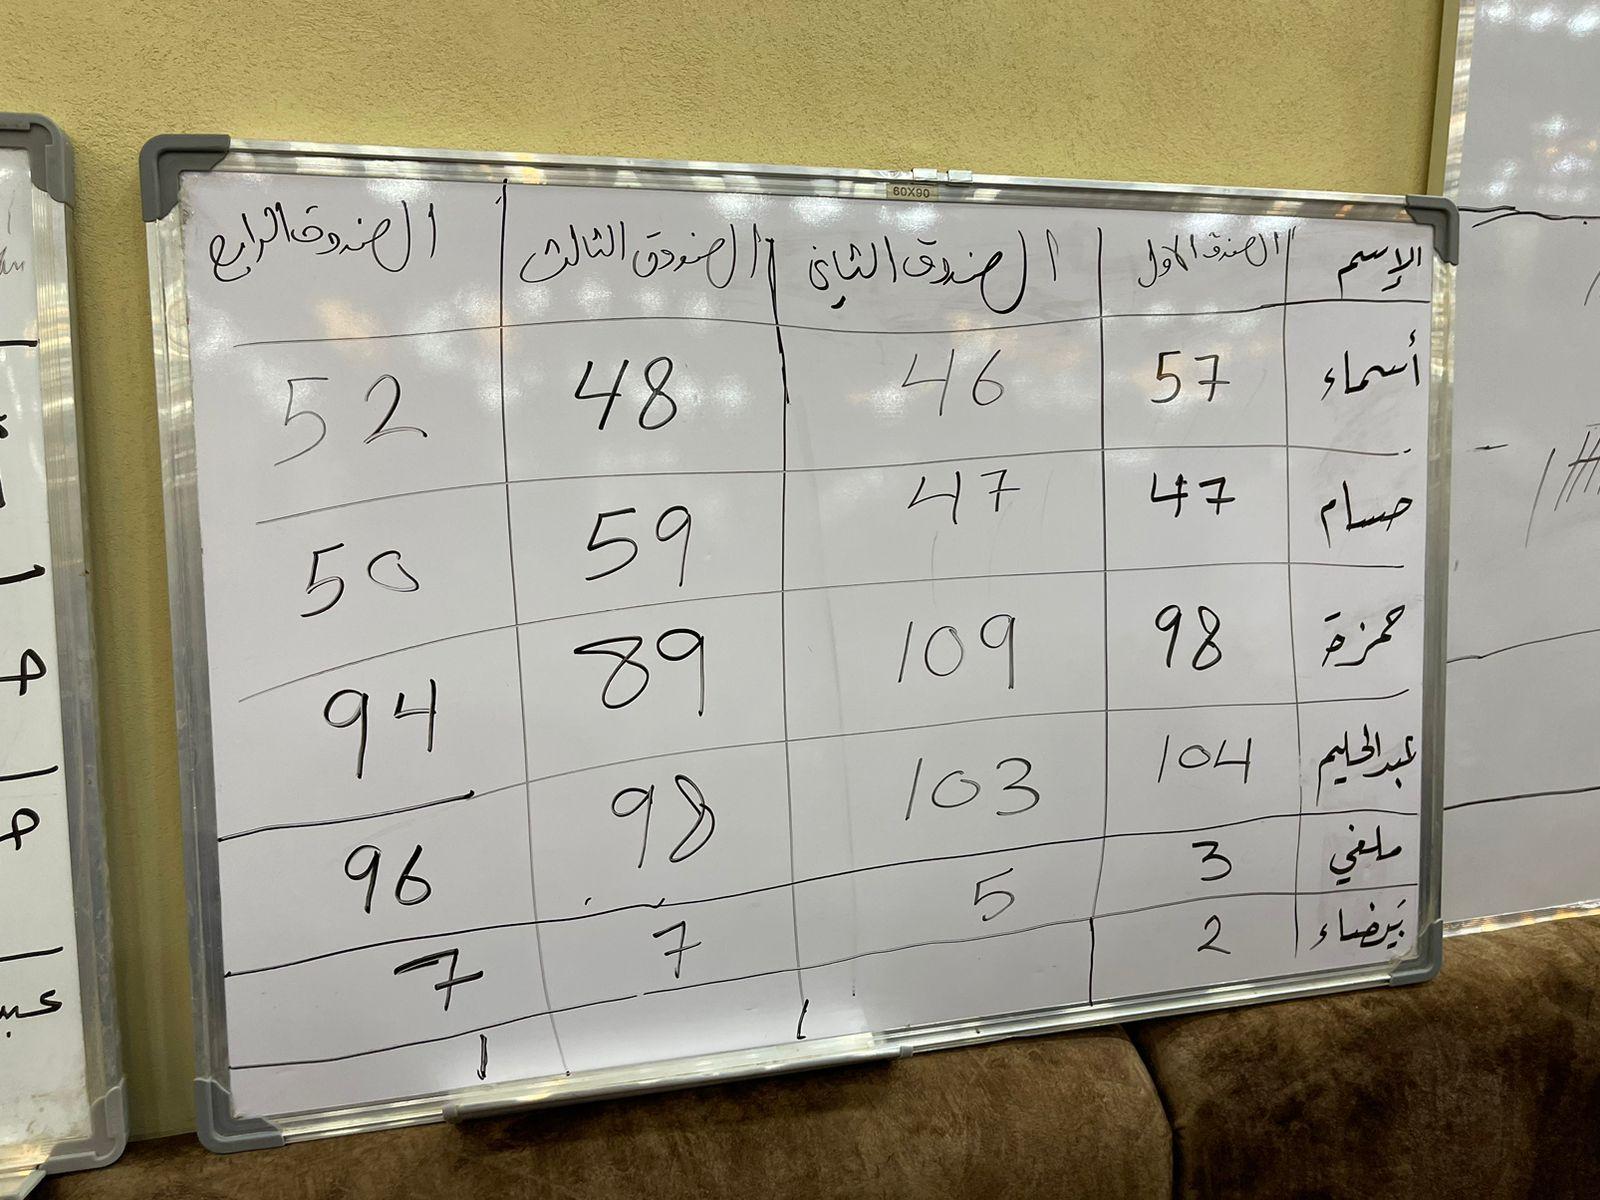 60X90
الإسم الصندوق الأول الصندوق الثاني الصندوق الثالث الصندوق الرابع
أسماء 57 46 48 52
حسام 47 47 59 50
حمزة 98 109 89 94
عبدالحليم 104 103 98 96
ملغي 3 5 7 7
بيضاء 2 1 1